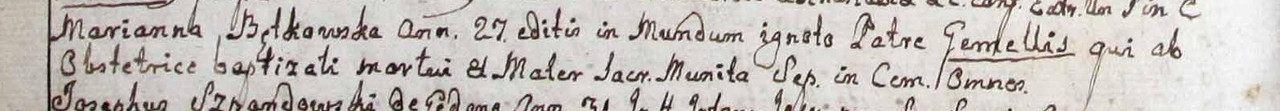 Catr. in C
Marianna Bętkowska Ann. 27. editis in Mundum ignoto Patre Gemellis qui ab
Obstetrice baptizati mortui et Mater Sacr. Munita Sep. in Cem. Omnes.
Josephus Ann 31